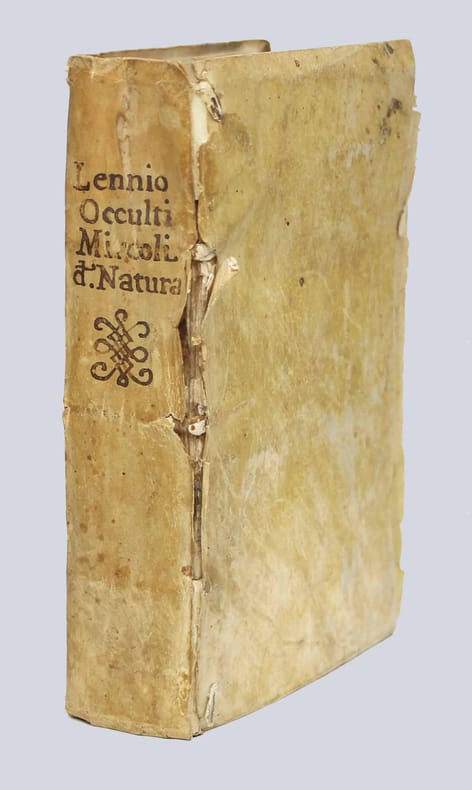 Lennio
Occulti
Miracoli
d. Natura